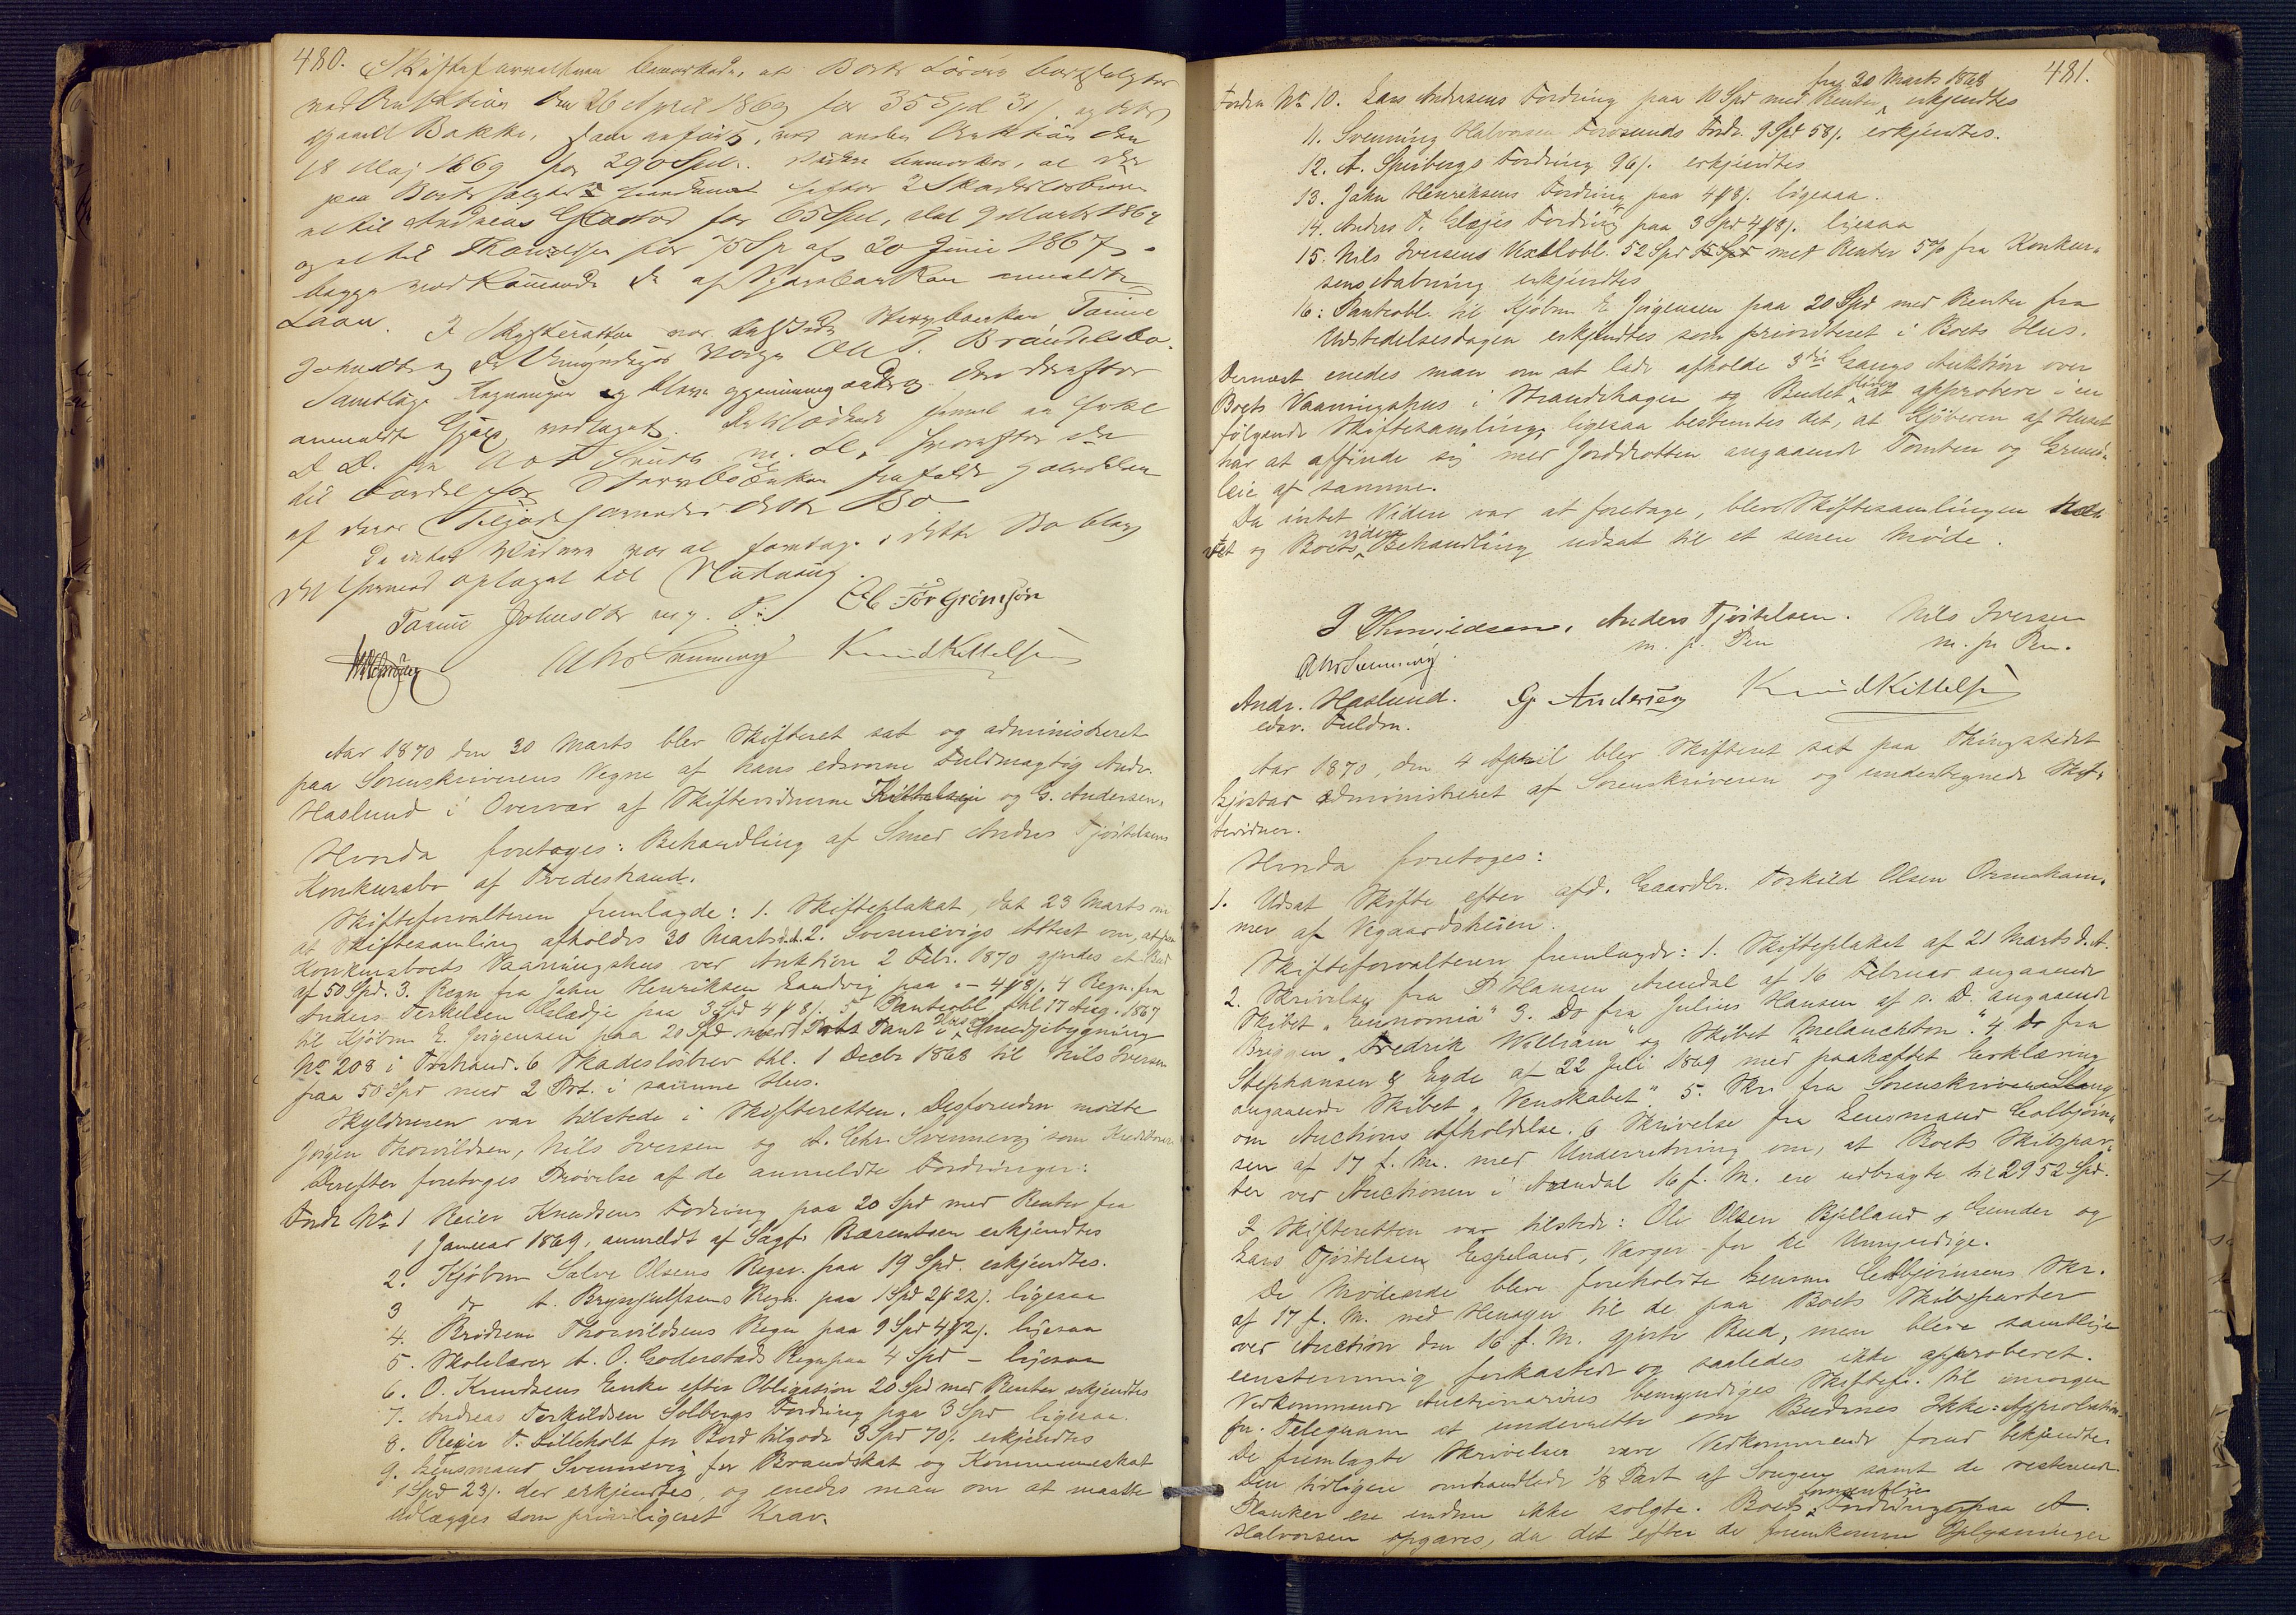 480.
Skifteforvalteren bemærkede, at Boets Løsøre bortsolgtes
ved Auktion den 26 April 1869 for 35 Spd 31 ß og dets
Bakke, som anført, ved anden Auktion den
18 Maj 1869 for 290 Spd. Videre bemærkes, at der
paa Boets hefter 2 Skadesløsbreve
et til Andreas for 65 Spd, dat 9 Marts 1864
og et til Thorvildsen for 75 Sp af 20 Juni 1867,
begge ved af Sparebanken anmeldte
Laan. I Skifteretten var tilstede Stervboenken Tarine
Johnsdtr og de Umyndiges Værge Ole T. Brændelsbo.
Samtlige Regninger blev gjennemgaaede og den derefter
anmeldte Gjæld vedtaget.
D. D. fra m. fl. hvorefter der
til Fordel for Stervboenken
af deres Tilgode havender i dette Bo
Da intet Videre var at foretage i dette Bo blev
det hermed optaget til Slutning.
Tarine Johnsdtr m. p. P. Ole Tørgrimsøn
A Chr Svennevig Knud Kittelsen
Aar 1870 den 30 Marts blev Skifteret sat og administreret
paa Sorenskriverens Vegne af hans edsvorne Fuldmægtig Andr.
Haslund i Overvær af Skiftevidnerne Kittelsen og G. Andersen.
Hvorda foretoges: Behandling af Smed Anders Tjøstelsens
Konkursbo af Tvedestrand.
Skifteforvalteren fremlagde: 1. Skifteplakat, dat 23 Marts om
at Skiftesamling afholdes 30 Marts d. A. 2. Svennevigs Attest om, at paa
Konkursboets Vaaningshus ved Auktion 2 Febr. 1870 gjordes et Bud
af 50 Spd. 3. Regn fra Jahn Henriksen Sandvig paa " - 4 ₰ 8 ß. 4 Regn. fra
Anders Terkelsen Glædje paa 3 Spd 4 ₰ 8 ß. 5 Pantobl. thl 17 Aug. 1867
til Kjøbm E. Jørgensen paa 20 Spd med 1ste Prts Pant i Hus og Smedjebygning
No 208 i Tvestrand. 6 Skadesløsbrev thl. 1 Decbr 1868 til Nils Iversen
paa 50 Spd med 2 Prt. i samme Hus.
Skyldneren var tilstede i Skifteretten. Desforuden mødte
Jørgen Thorvildsen, Nils Iversen og A. Chr. Svennevig som Kreditorer
Derefter foretoges Prøvelse af de anmeldte Fordringer:
Fordr No 1 Reier Knudsens Fodring paa 20 Spd med Renter fra
1 Januar 1869, anmeldt af Sagf. Bærentsen erkjendtes
2. Kjøbm Salve Olsens Regn. paa 19 Spd. erkjendtes.
3 do A. Brynjulfsens Regn. paa 1 Spd 2 ₰ 22 ß. ligesaa
4. Brødrene Thorvildsens Regn paa 9 Spd 4 ₰ 2 ß. ligesaa
5. Skolelærer A. O. Goderstads Regn paa 4 Spd - ligesaa
6. O. Knudsens Enke efter Obligasion 20 Spd med Renter erkjendtes
7. Andreas Terkildsen Solbergs Fordring paa 3 Spd ligesaa.
8. Reier T. Lilleholt for Bord tilgode 3 Spd 70 ß. erkjendtes
9. Lensmand Svennevig for Brandskat og Kommuneskat
1 Spd 23 ß. der erkjendtes, og enedes man om at maatte
udlægges som priviligeret Krav.
481.
Fordr No 10. Lars Andersens Fordring paa 10 Spd med Renter fra 30 Marts 1868 erkjendtes
11. Svenning Halvorsen Furosunds Fordr. 9 Spd 58 ß. erkjendtes.
12. A. Spirbergs Fordring 96 ß. erkjendtes
13. Jahn Henriksens Fordring paa 4 ₰ 8 ß. ligesaa.
14. Anders T. Glæjes Fordring paa 3 Spd 4 ₰ 8 ß. ligesaa
15. Nils Iversens Vexelobl. 52 Spd 15 Spd med Renter 5 % fra Konkur-
sens Aabning erkjendtes
16: Pantobl. til Kjøbm E Jørgensen paa 20 Spd med Renter fra
Udstedelsesdagen erkjendtes som prioriteret i Boets Hus.
Dernæst enedes man om at lade afholde 3die Gangs Auktion over
Boets Vaaningshus i Strandehagen og Budet at approbere i en
følgende Skiftesamling, ligesaa bestemtes det, at Kjøberen af Huset
har at affinde sig med Jorddrotten angaaende Tomten og Grund-
leie af samme.
Da intet Videre var at foretage, blev Skiftesamlingen hæ-
vet og Boets videre Behandling udsat til et senere Møde.
J Thorvildsen. Anders Tjøstelsen. Nils Iversen
m. p. Pen m. p. Pen.
A Chr Svennevig
Andr. Haslund. G. Andersen Knud Kittelsen
edsv. Fuldm.
Aar 1870, den 4 April blev Skifteret sat paa Thingstedet
Gjøstad administreret af Sorenskriveren og undertegnede Skif-
tevidner.
Hvorda foretoges:
1. Udsat Skifte efter afd. Gaardbr. Torkild Olsen Ormekam-
mer af Vegaardsheien.
Skifteforvalteren fremlagde: 1. Skifteplakat af 21 Marts d. A.
2. Skrivelse fra P Hansen Arendal af 16 Februar angaaende
Skibet „Eunomia" 3. Do fra Julius Hansen af s. D. angaaende
Briggen „Fredrik William" og Skibet „Melanchton". 4. Do fra
Stephansen & Eyde af 22 Juli 1869 med paahæftet Erklæring
angaaende Skibet „Venskabet". 5. Skr. fra Sorenskriver Stang
om Auctions Afholdelse. 6 Skrivelse fra Lensmand Colbjørn-
sen af 17 f. M. med Underretning om, at Boets Skibspar-
ter ved Auctionen i Arendal 16 f. M. ere udbragte til 2952 Spd.
I Skifteretten var tilstede: Ole Olsen Bjelland, Gunder og
Lars Tjøstelsen Espeland, Værger for de Umyndige.
De Mødende bleve foreholdte Lensm Colbjørnsens Skr.
af 17 f. M. med Hensyn til de paa Boets Skibsparter
ved Auction den 16 f. M. gjorte Bud, men bleve samtlige
eenstemmig forkastede og saaledes ikke approberet.
Vedkommende Auctionarius bemyndiges Skiftef. til imorgen
pr. Telegram at underrette om Budenes Ikke-Approbation.
De fremlagte Skrivelser vare Vedkommende forud bekjendte.
Den tidligere omhandlede 1/8 Part af Songen samt de resterende
Planker ere endnu ikke solgte. Boets formentlige Fordringer paa A.
Halvorsen opgaves, da det efter de fremkomne Oplysninger